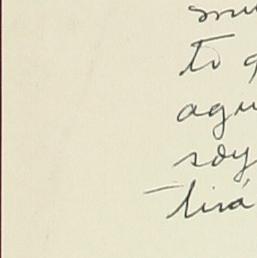 mu
to q
agu
soy
tirá